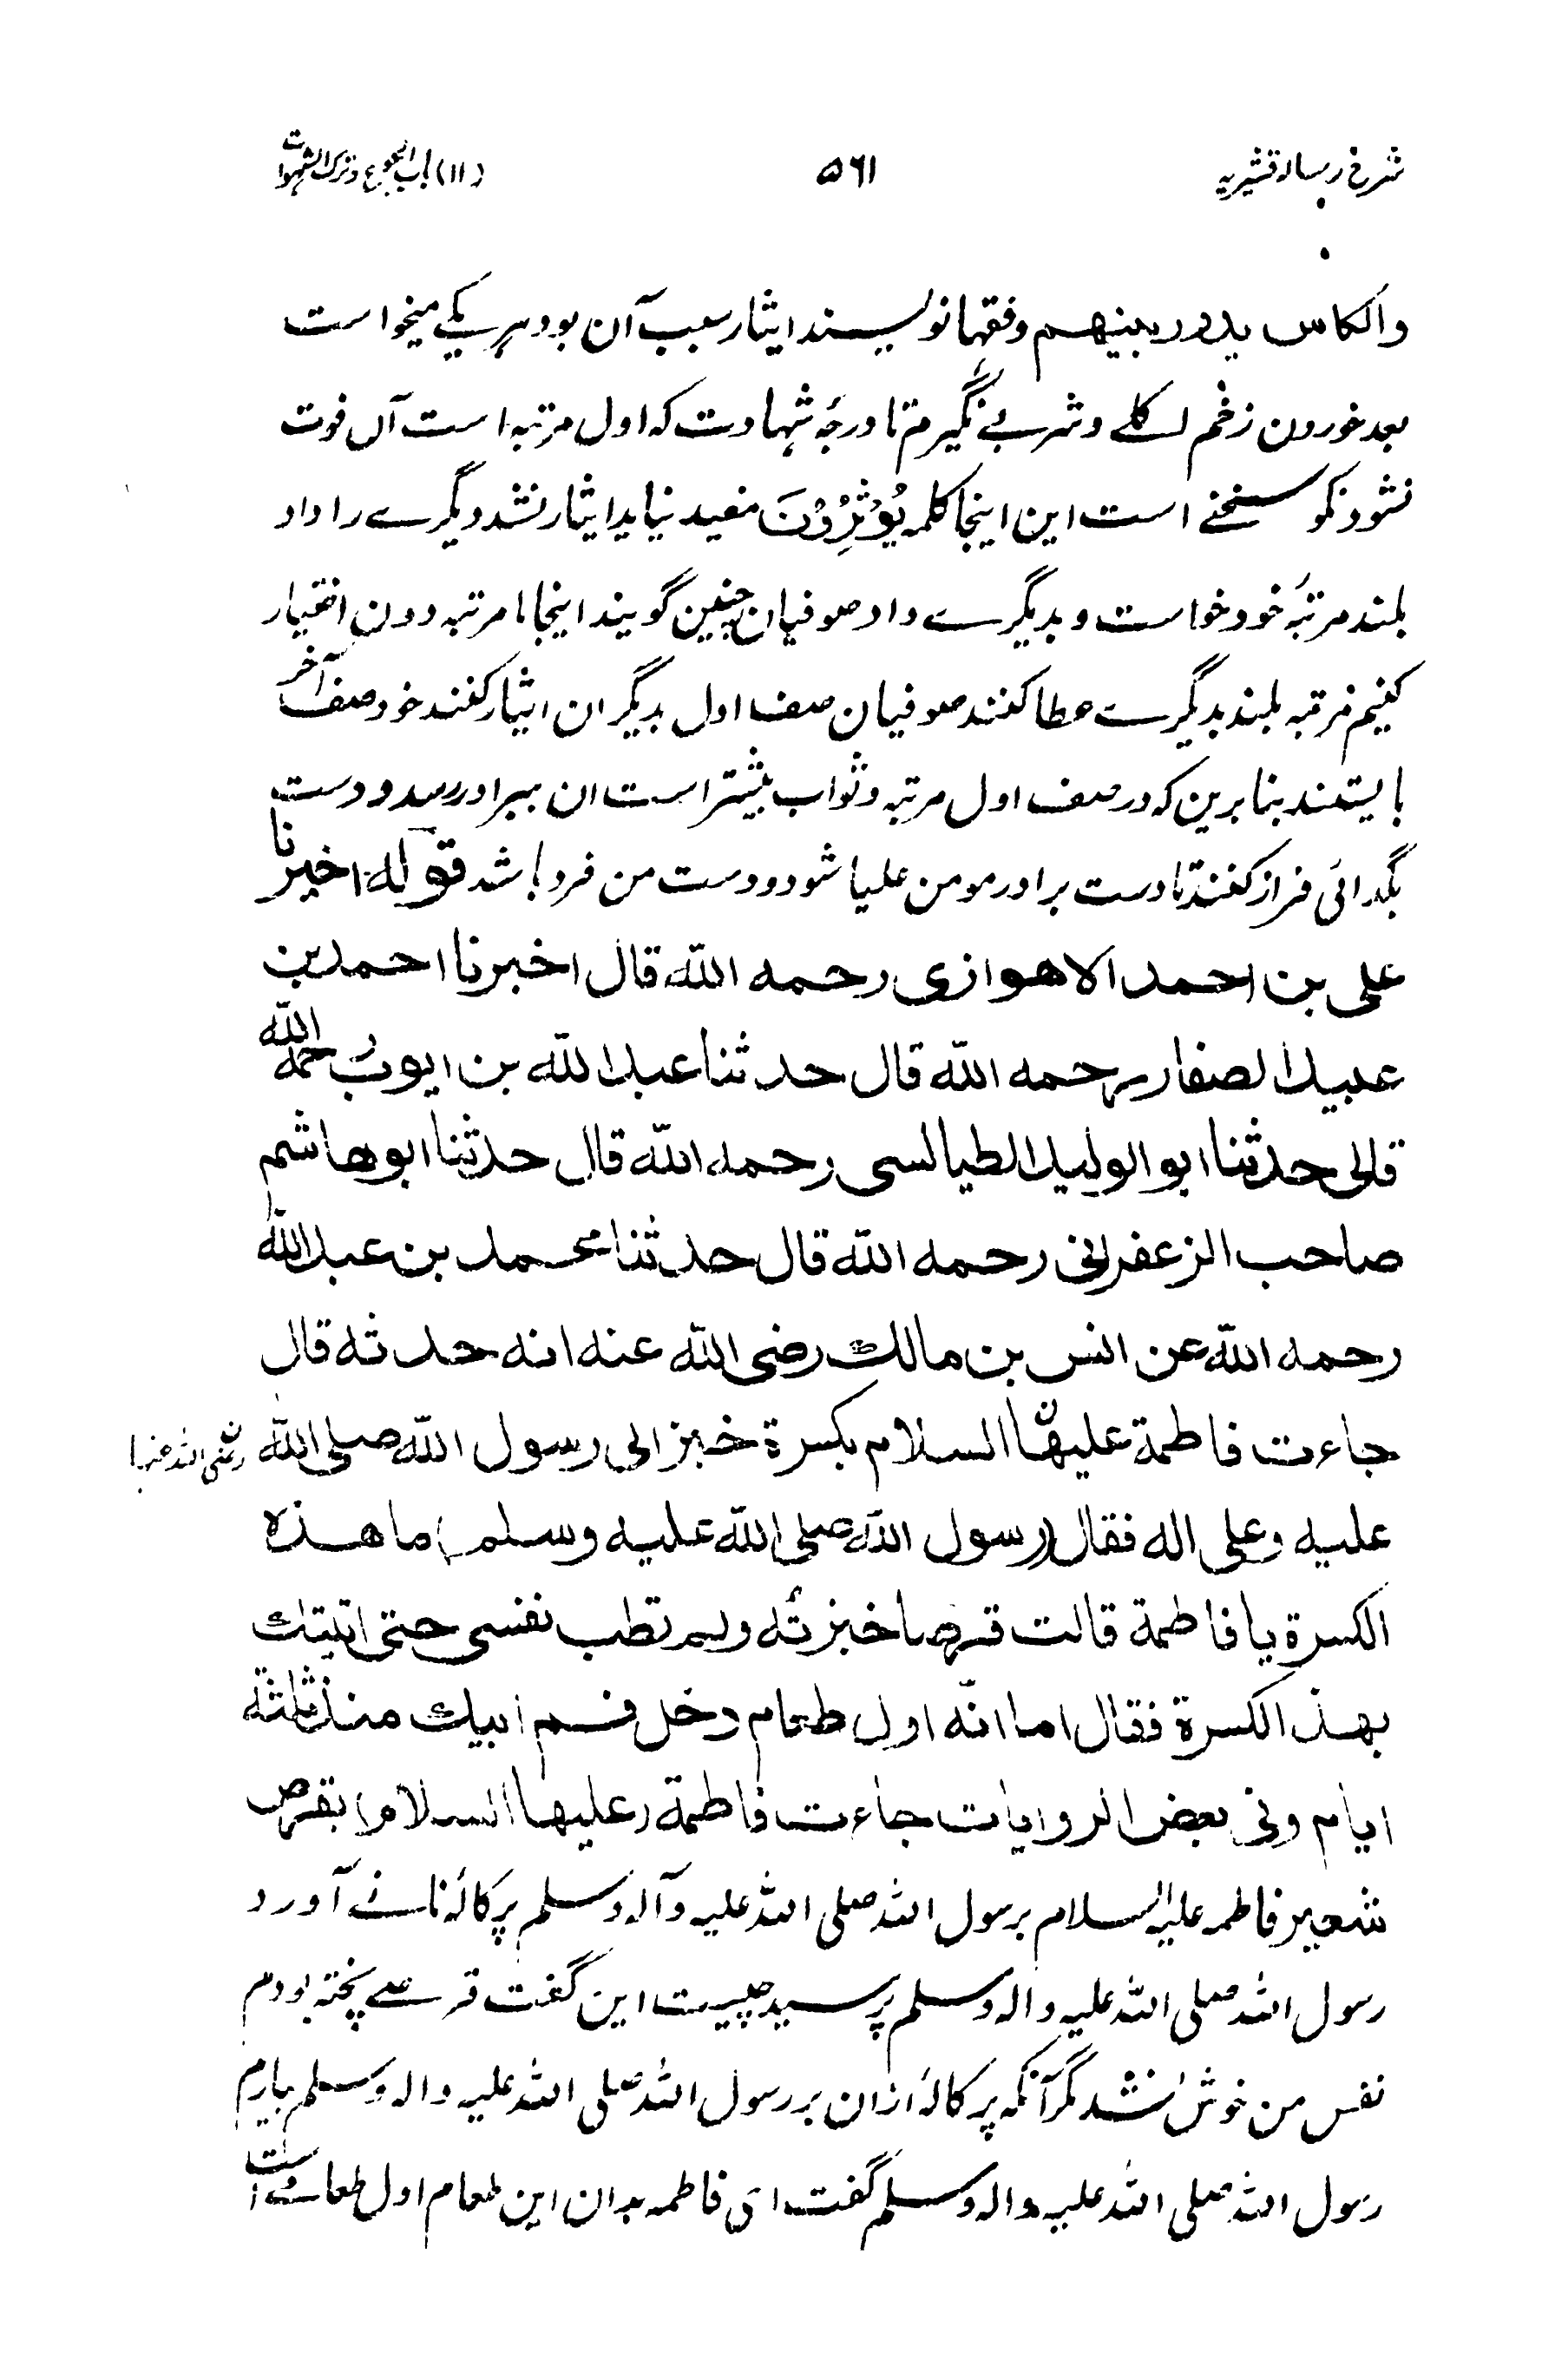 شرح رساله قشیریه ۵۶۱ (۱۱) باب الجوع و ترک الشهوات
والکاس یدور بینهم وفقها نویسند ایثار سبب آن بود هر یکے میخواست
بعد خوردن زخم اکلے وشربے نگیرم تا درجۂ شهادت که اول مرتبه است آں فوت
نشود نکو سخنے است این اینجا کلمه یُؤْثِرُوْنَ مفید نیاید ایثار نشد دیگرے را داد
بلند مرتبۂ خود خواست و بدیگرے داد صوفیان چنین گویند اینجا ما مرتبه دون اختیار
کنیم مرتبه بلند بدیگرے عطا کنند صوفیان صف اول بدیگران ایثار کنند خود صف آخر
بایستند بنابرین که در صف اول مرتبه و ثواب بیشتر است ان ببرادر رسد و دست
بگدائی فراز کنند تا دست برادر مومن علیا شود و دست من فرو باشد قوله اخبرنا
علی بن احمد الاهوازی رحمه اللّه قال اخبرنا احمد بن
عبید الصفار رحمه اللّه قال حدثنا عبد اللّه بن ایوب رحمه اللّه
قال حدثنا ابو الولید الطیالسی رحمه اللّه قال حدثنا ابو هاشم
صاحب الزعفرانی رحمه اللّه قال حدثنا محمد بن عبد اللّه
رحمه اللّه عن انس بن مالک رضی اللّه عنه انه حدثه قال
جاءت فاطمة علیهاؔ السلام بکسرة خبز الی رسول اللّه صلی اللّه
ن رضی اللّه عنها
علیه وعلی اله فقال (رسول اللّه صلی اللّه علیه وسلم) ما هذه
الکسرة یا فاطمة قالت قرصا خبزته ولم تطب نفسی حتی اتیتک
بهذ الکسرة فقال اما انّه اول طعام دخل فم ابیک منذ ثلثة
ایام وفی بعض الروایات جاءت فاطمة (علیها السلام) بقرص
شعیر فاطمه علیہ السلام برسول اللّه صلی اللّه علیه وآله وسلم پرکالۂ نانے آورد
رسول اللّه صلی اللّه علیه واله وسلم پرسید چیست این گفت قرصے پخته بودم
نفس من خوش نشد مگر آنکه پرکالۂ ازان بر رسول اللّه صلی اللّه علیه واله وسلم بیارم
رسول اللّه صلی اللّه علیه واله وسلم گفت ای فاطمه بدان این طعام اول طعامے است